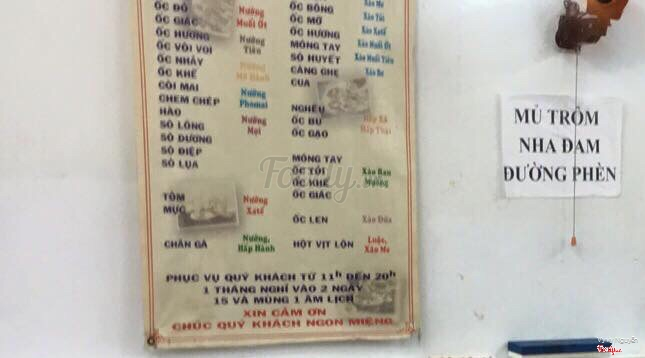 ỐC ĐỎ
ỐC GIÁC
ỐC HƯƠNG
ỐC VÒI VOI
ỐC NHẢY
ỐC KHẾ
CÒI MAI
CHEM CHÉP
HÀO
SÒ LÔNG
SÒ DƯƠNG
SÒ ĐIỆP
SÒ LỤA
Nướng
Muối Ớt
Nướng
Tiêu
Nướng
Mỡ Hành
Nướng
Phomai
Nướng
Mọi
TÔM
MỰC
Nướng
Xatế
CHÂN GÀ
Nướng,
Hấp Hành
ỐC BÔNG
ỐC MỠ
ỐC HƯƠNG
MÓNG TAY
SÒ HUYẾT
CÀNG GHẸ
CUA
Xào Me
Xào Tỏi
Xào Xatế
Xào Muối Ớt
Xào Muối Tiêu
Xào Bơ
NGHÊU
ỐC BU
ỐC GẠO
Hấp Xả
Hấp Thái
MÓNG TAY
ỐC TỎI
ỐC KHẾ
ỐC GIÁC
Xào Rau
Muống
ỐC LEN
Xào Dừa
HỘT VỊT LỘN
Luộc,
Xào Me
PHỤC VỤ QUÝ KHÁCH TỪ 11h ĐẾN 20h
1 THÁNG NGHỈ VÀO 2 NGÀY
15 VÀ MÙNG 1 ÂM LỊCH
XIN CẢM ƠN
CHÚC QUÝ KHÁCH NGON MIỆNG
MỦ TRÔM
NHA ĐAM
ĐƯỜNG PHÈN
Foody.vn